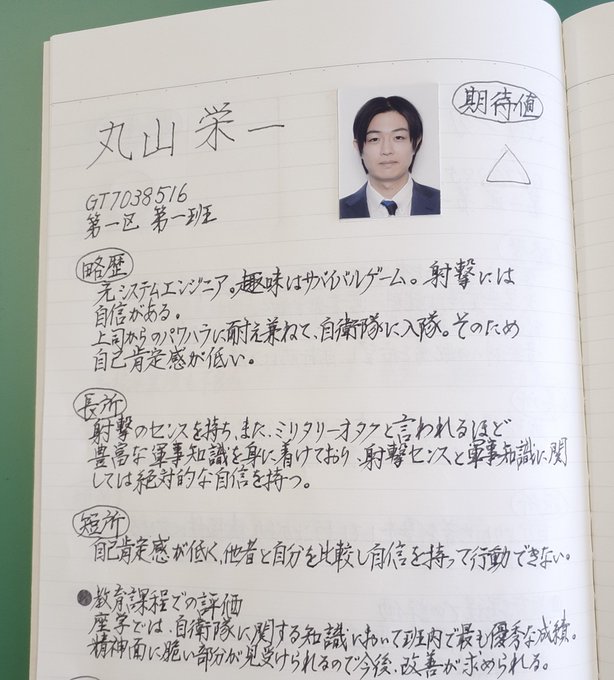 丸山栄一
期待値
GT7038516
第一区 第一班
略歴
元システムエンジニア。趣味はサバイバルゲーム。射撃には
自信がある。
上司からのパワハラに耐え兼ねて、自衛隊に入隊。そのため
自己肯定感が低い。
長所
射撃のセンスを持ち、また、ミリタリーオタクと言われるほど
豊富な軍事知識を身に着けており、射撃センスと軍事知識に関
しては絶対的な自信を持つ。
短所
自己肯定感が低く、他者と自分を比較し自信を持って行動できない。
●教育課程での評価
座学では、自衛隊に関する知識において班内で最も優秀な成績。
精神面に脆い部分が見受けられるので今後、改善が求められる。